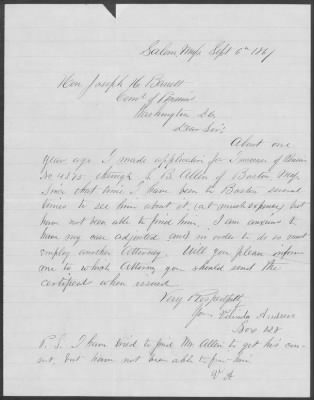 Salem, Mass Sept 6th 1867
Hon. Joseph H Barrett
Com. of Pensions
Washington D.C.
Dear Sir:
About one
year ago I made application for Increase of Pension
No 4875 through J. B. Allen of Boston, Mass.
Since that time I have been to Boston several
times to see him about it, (at much expense) but
have not been able to find him. I am anxious to
have my case adjusted and in order to do so must
employ another Attorney. Will you please inform
me to which Attorney you should send the
certificate when issued
Very Respectfully
Yours Andrews
Box 128
P.S. I have tried to find Mr Allen to get his con-
sent, but have not been able to find him
A